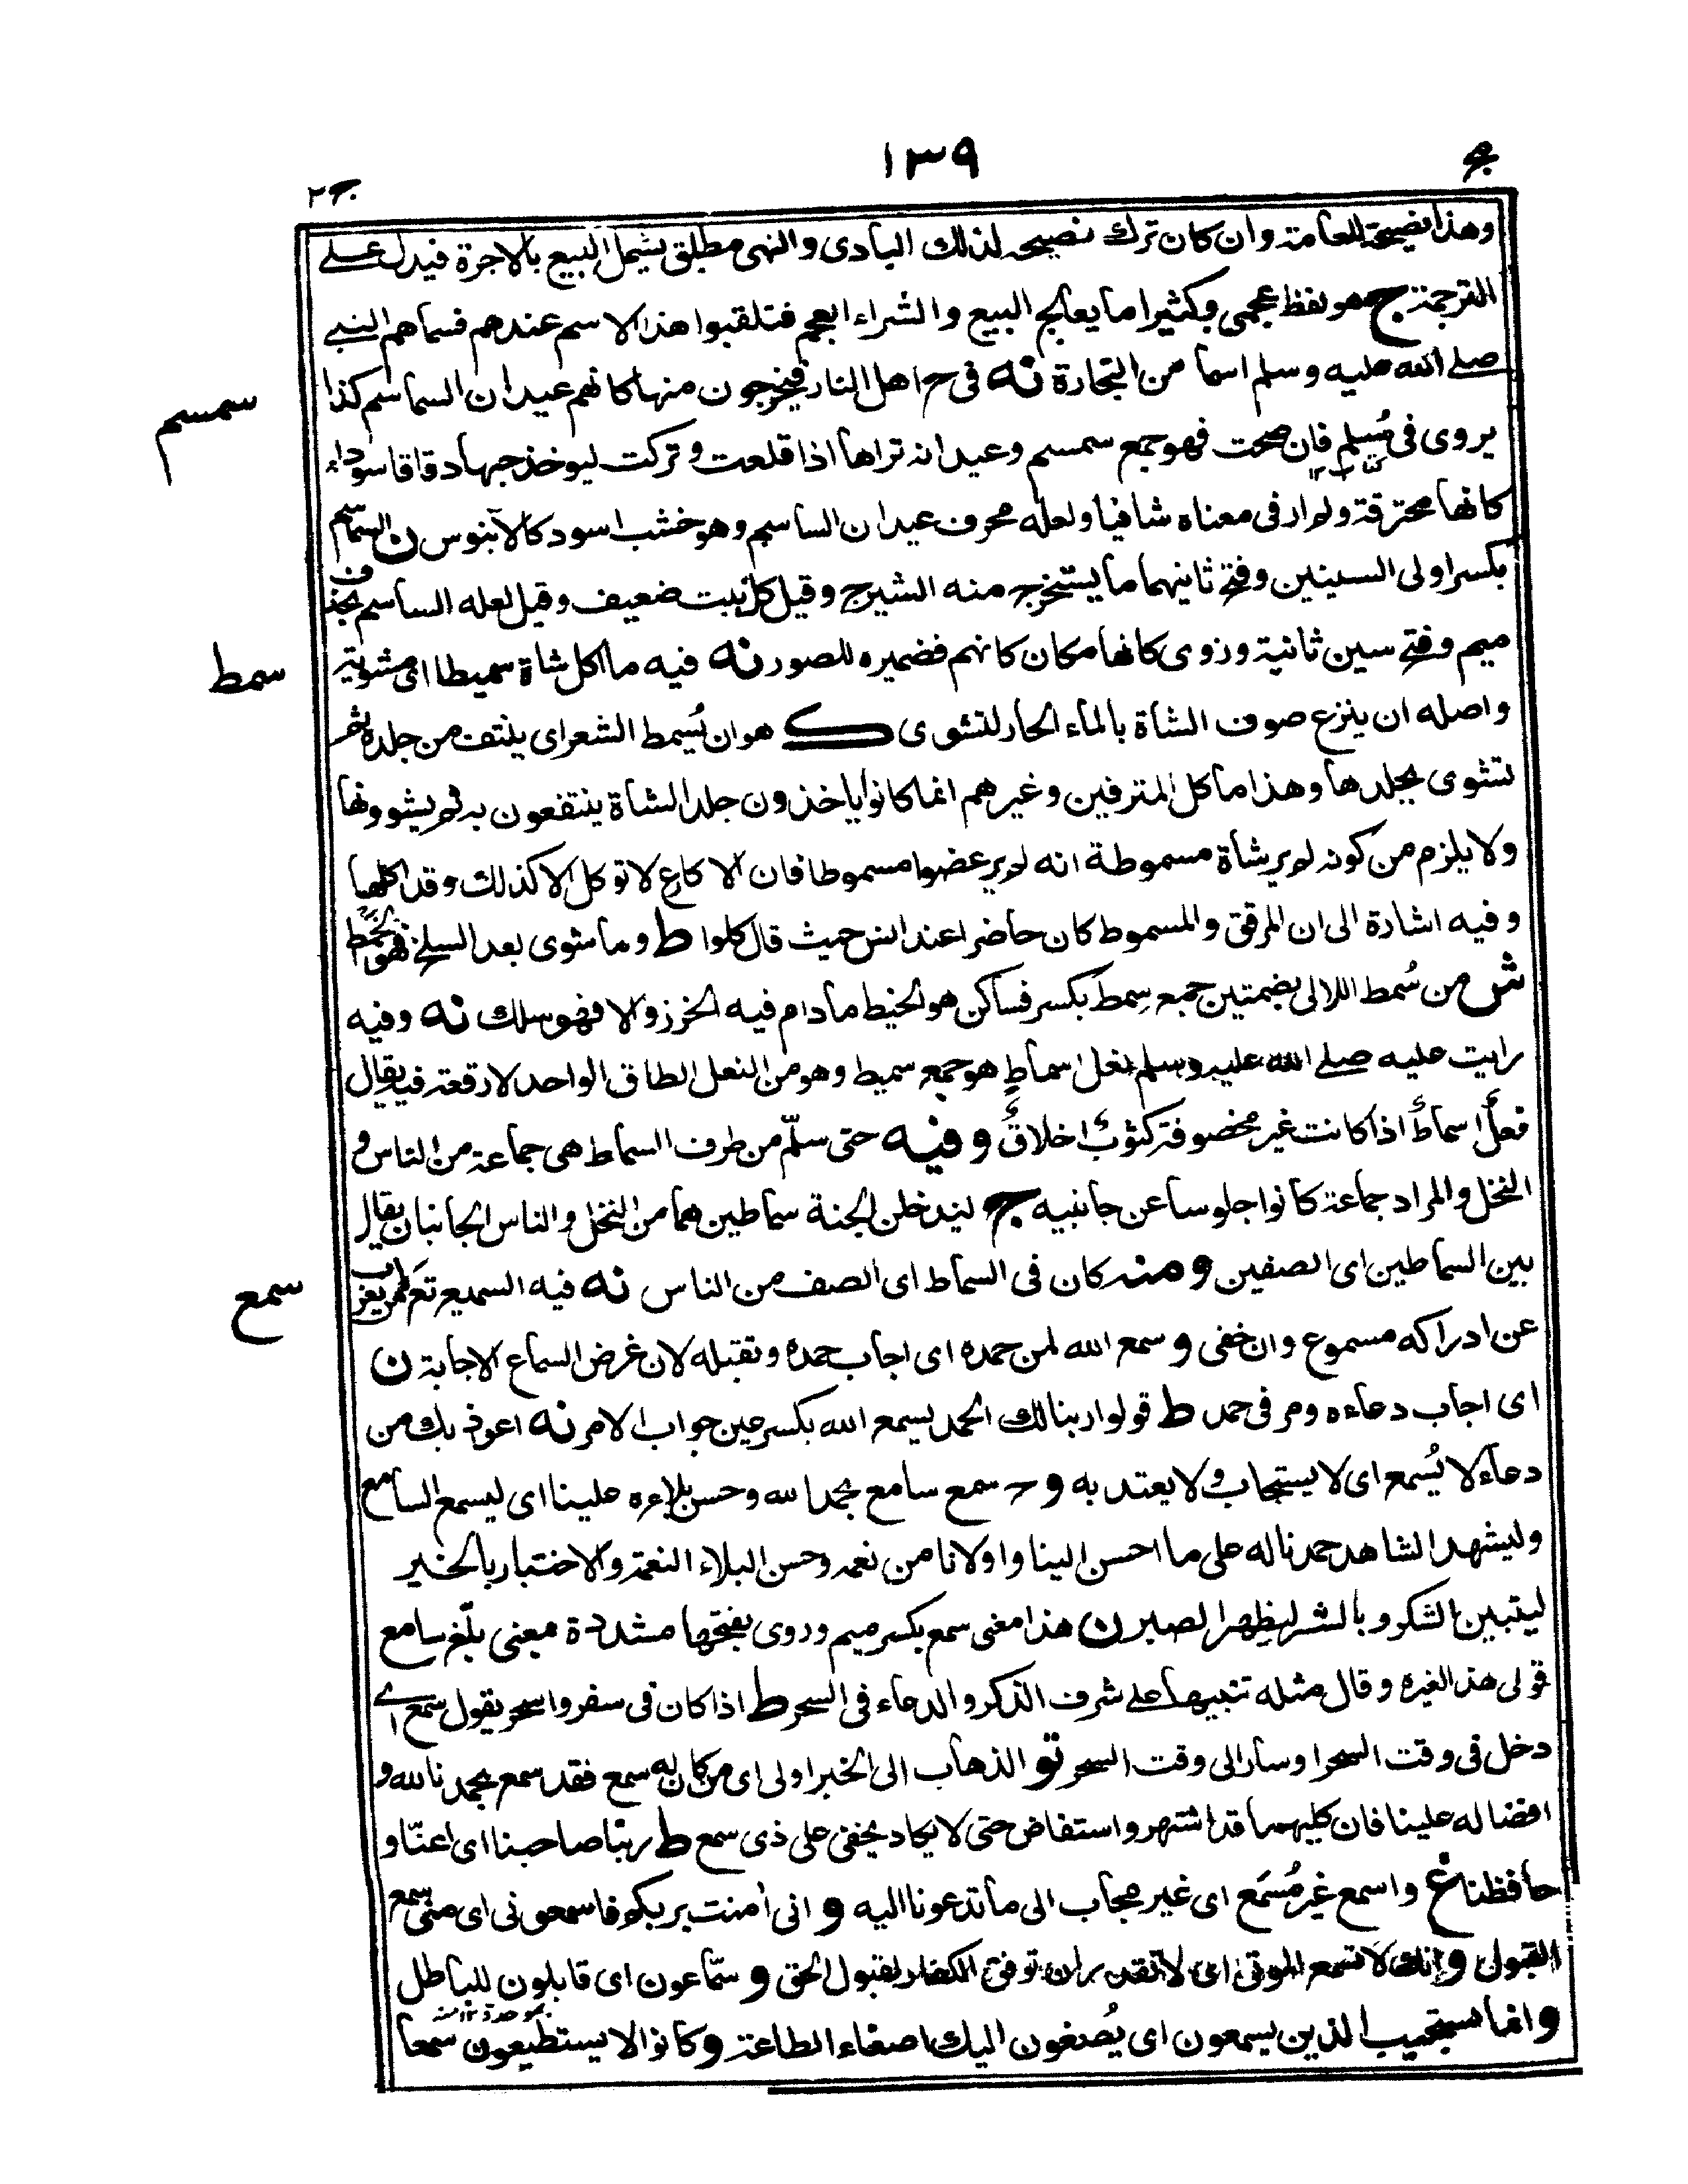 ١٣٩
ج٢
وهذا نصيحة للعامة وان كان ترك نصيحه لذلك البادى والنهى مطلق يشمل البيع بالاجرة فيدل على
الترجمة ج هو لفظ عجمى وكثيرا ما يعالج البيع والشراء العجم فتلقبوا هذا الاسم عندهم فسماهم النبى
صلى الله عليه وسلم اسما من التجارة نه فى ح اهل النار فيخرجون منها كانهم عيدان السماسم كذا
سمسم
يروى فى مسلم فان صحت فهو جمع سمسم وعيدانه تراها اذا قلعت وتركت ليوخذ حبها دقاقا سوداء
كانها محترقة ولم ار فى معناه شافيا ولعله محرف عيدان الساسم وهو خشب اسود كالآبنوس ن السماسم
بكسر اولى السينين وفتح ثانيهما ما يستخرج منه الشيرج وقيل كل نبت ضعيف وقيل لعله الساسم بحذف
ميم وفتح سين ثانية وروى كانها مكان كانهم فضميره للصور نه فيه ما اكل شاة سميطا اى مشوية
سمط
واصله ان ينزع صوف الشاة بالماء الحار لتشوى ك هو ان يُسمط الشعر اى ينتف من جلده ثم
تشوى بجلدها وهذا ماكل المترفين وغيرهم انما كانوا ياخذون جلد الشاة ينتفعون به ثم يشوونها
ولا يلزم من كونه لم ير شاة مسموطة انه لم ير عضوا مسموطا فان الاكارع لا توكل الا كذلك وقد اكلها
وفيه اشارة الى ان المرقق والمسموط كان حاضرا عند انس حيث قال كلوا ط وما شوى بعد السلخ فهو الخمط
ش من سُمط اللالى بضمتين جمع سِمط بكسر فساكن هو الخيط ما دام فيه الخرز والا فهو سلك نه وفيه
رايت عليه صلى الله عليه وسلم نعل اسماطٍ هو جمع سميط وهو من النعل الطاق الواحد لا رقعة فيه يقال
نعلٌ اسماطٌ اذا كانت غير مخصوفة كثوبٌ اخلاقٌ وفيه حتى سلّم من طرف السماط هى جماعة من الناس و
النخل والمراد جماعة كانوا جلوسا عن جانبيه ج ليدخلن الجنة سماطين هما من النخل والناس الجانبان يقال
بين السماطين اى الصفين ومنه كان فى السماط اى الصف من الناس نه فيه السميع تع لمن يعزب
سمع
عن ادراكه مسموع وان خفى و سمع الله لمن حمده اى اجاب حمده وتقبله لان غرض السماع الاجابة ن
اى اجاب دعاءه ومر فى حمد ط قولوا ربنا لك الحمد يسمع الله بكسر عين جواب الامر نه اعوذ بك من
دعاء لا يُسمع اى لا يستجاب ولا يعتد به و ح سمع سامع بحمد الله وحسن بلاءه علينا اى ليسمع السامع
وليشهد الشاهد حمدنا له على ما احسن الينا واولانا من نعمه وحسن البلاء النعمة والاختبار بالخير
ليتبين الشكر وبالشر ليظهر الصبر ن هذا معنى سمع بكسر ميم وروى بفتحها مشددة بمعنى بلّغ سامع
قولى هذا لغيره وقال مثله تنبيها على شرف الذكر والدعاء فى السحر ط اذا كان فى سفر واسحر يقول سمع اى
دخل فى وقت السحر او سار الى وقت السحر تو الذهاب الى الخبر اولى اى من كان له سمع فقد سمع بحمدنا لله و
افضاله علينا فان كليهما قد اشتهر واستفاض حتى لا يكاد يخفى على ذى سمع ط ربنا صاحبنا اى اعنّا و
حافظنا غ واسمع غير مُسمَع اى غير مجاب الى ما تدعونا اليه و انى آمنت بربكم فاسمعونى اى منى سمع
القبول و انك لا تسمع الموتى اى لا تقدر ان توفق الكفار لقبول الحق و سمّاعون اى قابلون للباطل
و انما يستجيب الذين يسمعون اى يُصغون اليك اصغاء الطاعة و كانوا لا يستطيعون سمعا